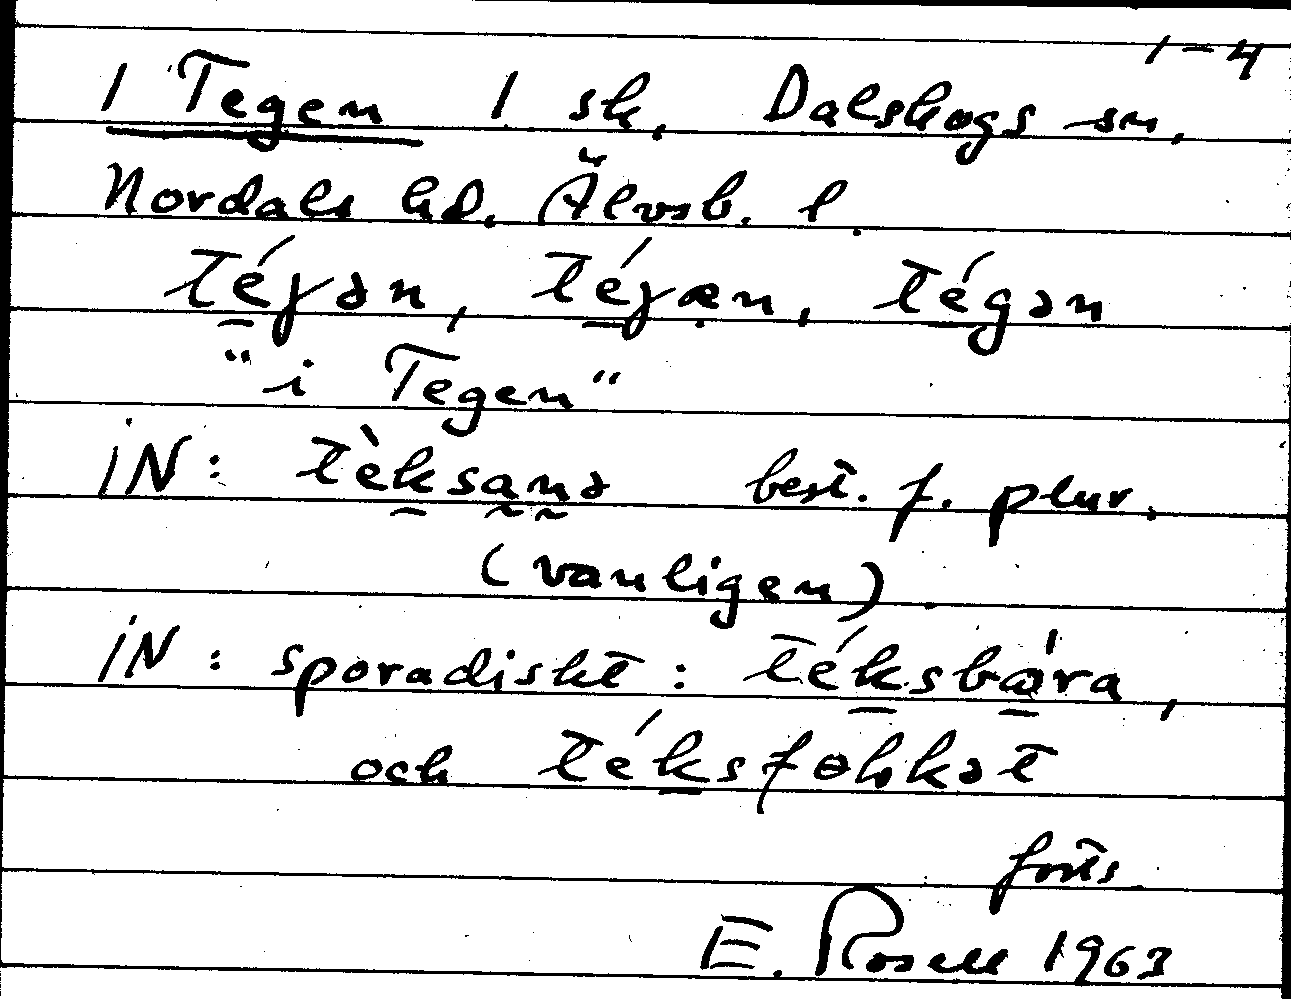 1-4
1 Tegen 1 sk. Dalskogs sn.
Nordals hd. Älvsb. l.
téɣən, téɣæn, tégən
"i Tegen"
iN: tèksanə best. f. plur.
(vanligen)
iN: sporadiskt: téksbàra,
och téksfɵlkət
forts.
E. Rosell 1963